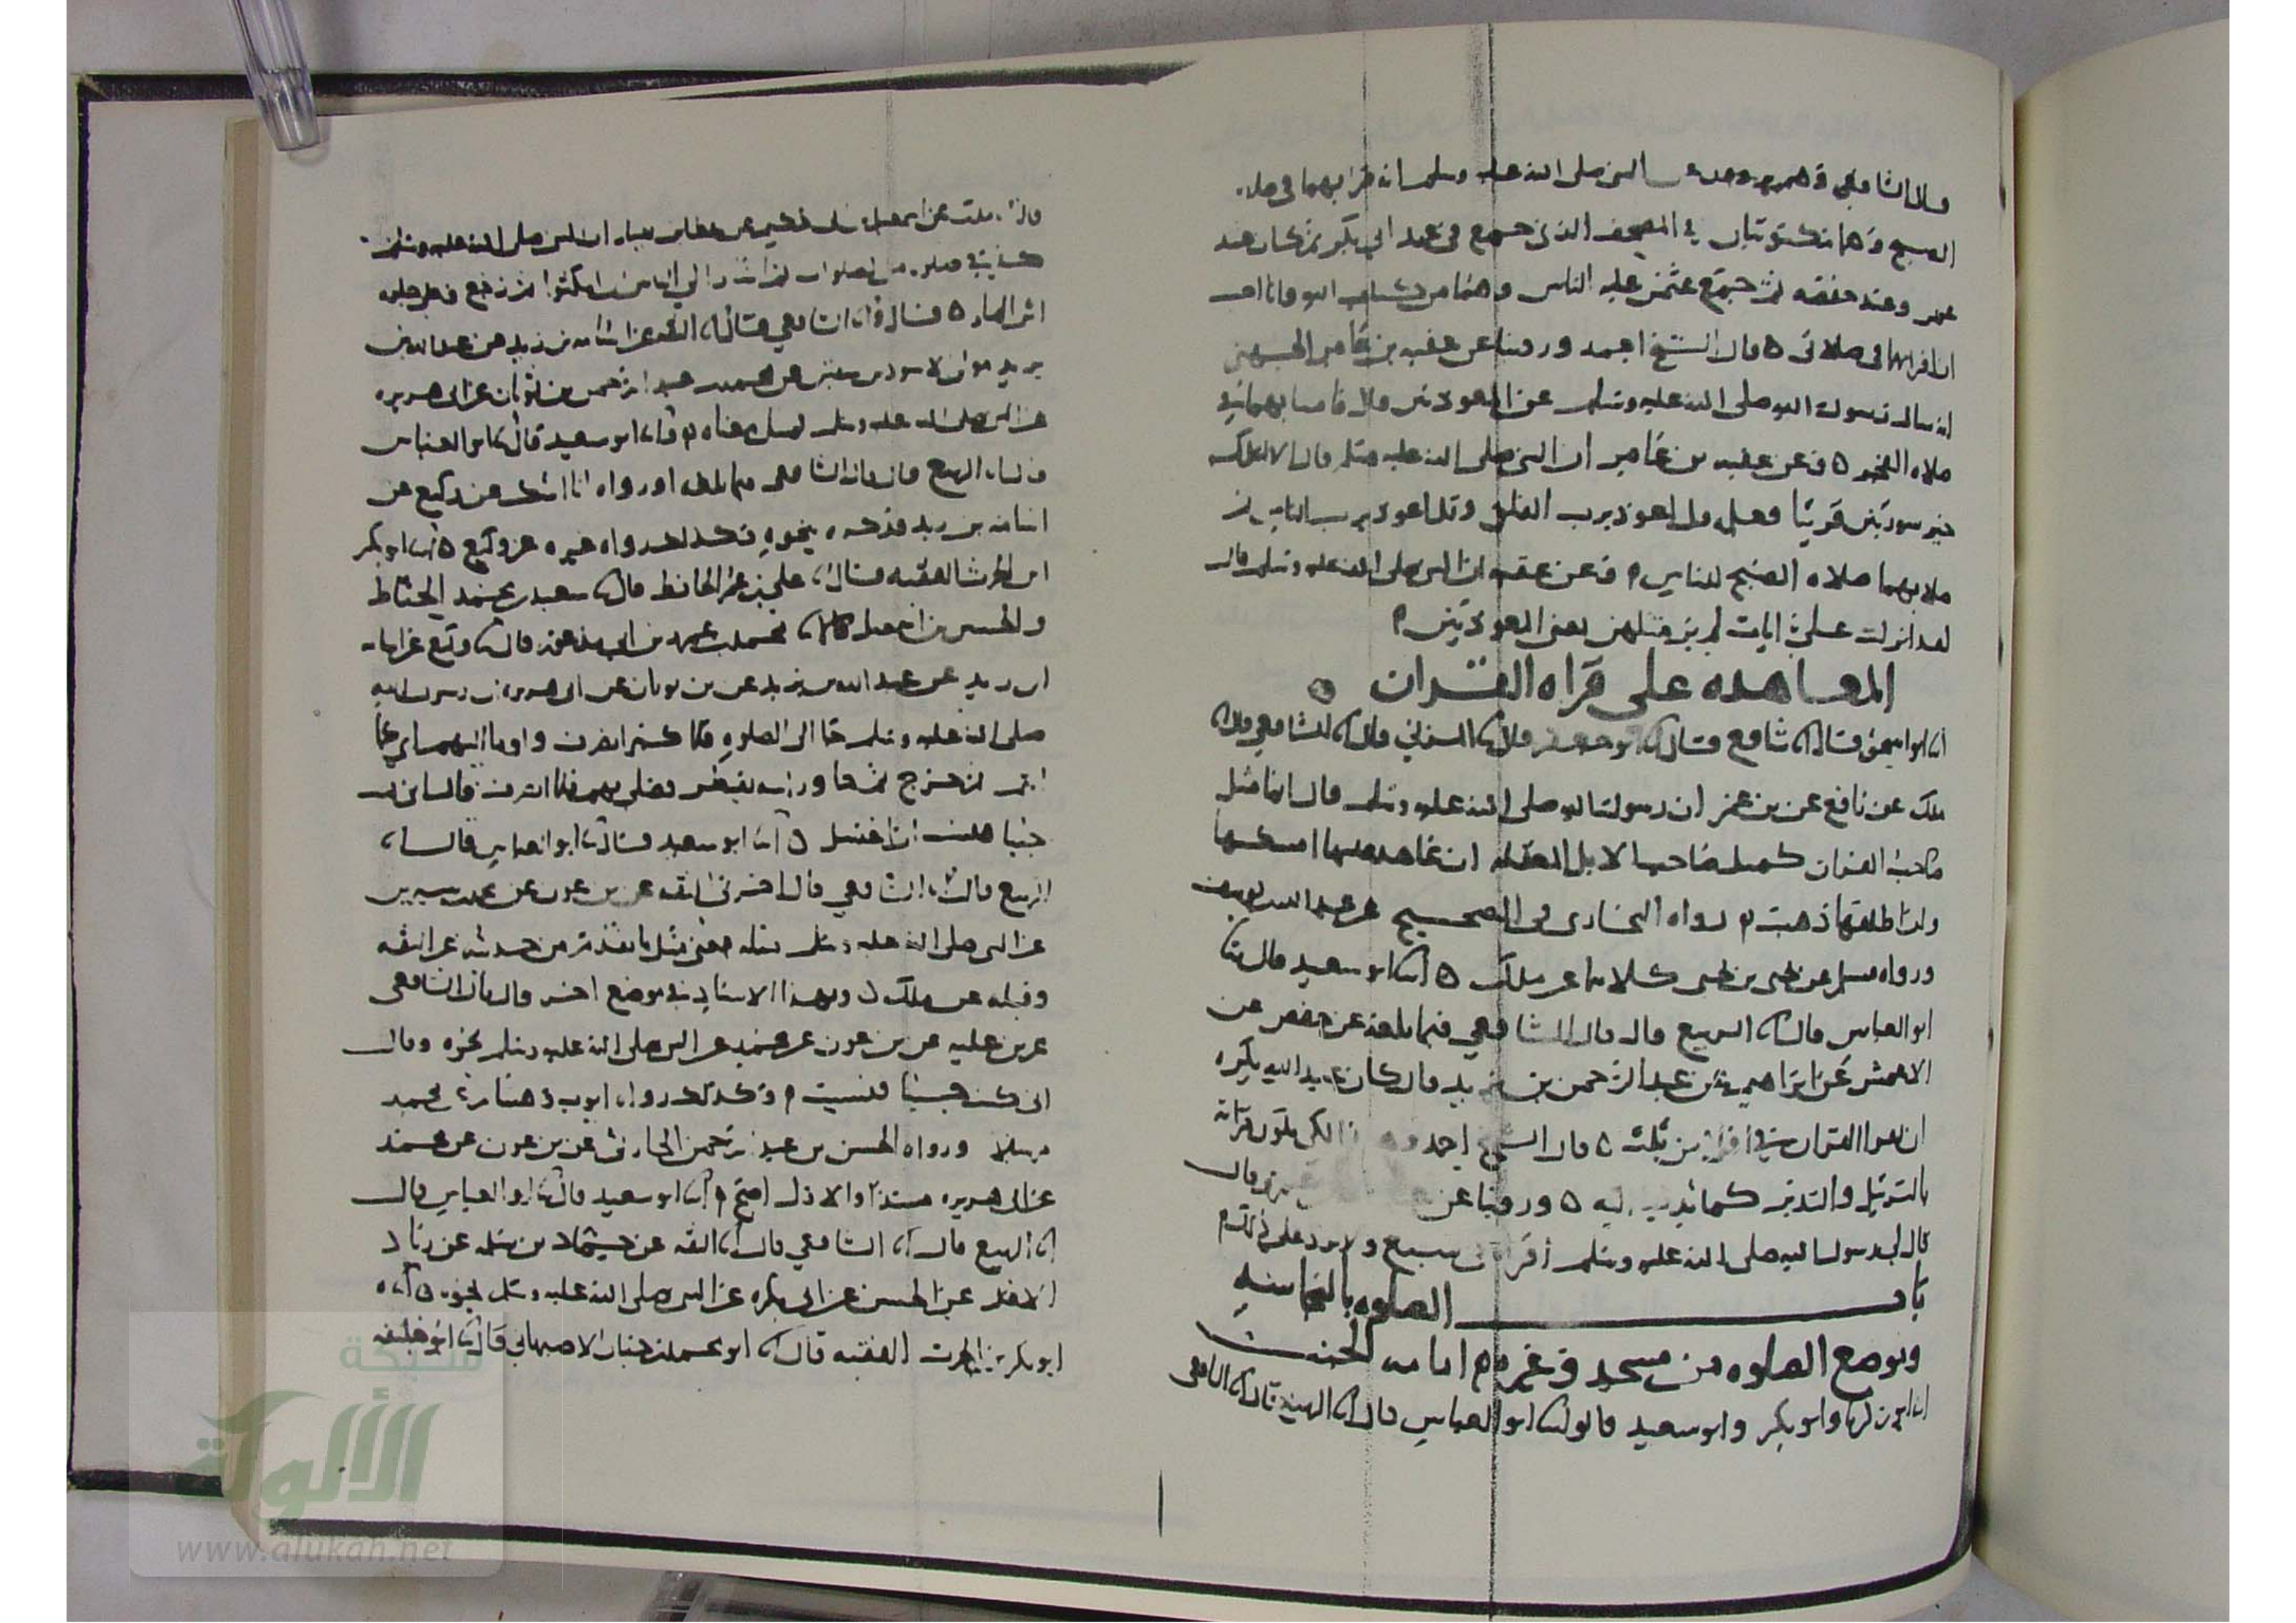 قال الشافعي النبي صلى الله عليه وسلم انه قرا بهما في صلاه
الصبح وهما مكتوبتان في المصحف الذي جمع في عهد ابي بكر ثم كان عند
عمر وعند حفصه ثم جمع عثمن عليه الناس وهما من كتاب الله وانا احب
ان اقرابهما في صلاتي ه قال الشيخ احمد وروينا عن عقبه بن عامر الجهني
انه سال رسول الله صلى الله عليه وسلم عن المعوذتين قال فامنا بهما في
صلاه الفجر ه وعن عقبه بن عامر ان النبي صلى الله عليه وسلم قال الا اعلمك
خير سورتين قريتا فعلمه قل اعوذ برب الفلق وقل اعوذ برب الناس ثم
صلا بهما صلاه الصبح للناس وعن عقبه ان النبي صلى الله عليه وسلم قال
لقد انزلت علي ايات لم ير مثلهن يعني المعوذتين
المعاهده على قراه القران
ابو اسحق قال شافع قال ابو جعفر قال المزني قال الشافعي قال
ملك عن نافع عن بن عمر ان رسول الله صلى الله عليه وسلم قال انما مثل
صاحب القران كمثل صاحب الابل المعقله ان عاهد عليها امسكها
وان اطلقها ذهبت رواه البخاري في الصحيح عن عبد الله بن يوسف
ورواه مسلم عن يحيى بن يحيى كلاهما عن ملك ه ابو سعيد قال
ابو العباس قال الربيع قال قال الشافعي فيما بلغه عن حفص عن
الاعمش عن ابراهيم عن عبد الرحمن بن يزيد قال كان عبد الله يكره
ان يقرا القران في اقل من ثلث ه قال الشيخ احمد لكي يكون قراته
بالترتيل والتدبر ه وروينا عن قال
قال لي رسول الله صلى الله عليه وسلم اقراه في سبع ولا تزد على ذلك
باب الصلوه بالنجاسه
وموضع الصلوه من مسجد وغيره امامه الجنب
ابو زكريا وابو بكر وابو سعيد قالوا ابو العباس قال الربيع قال الشافعي
ملك عن اسمعيل بن ابي حكيم عن عطا بن يسار ان النبي صلى الله عليه وسلم
كبر في صلوه من الصلوات ثم اشار الى الناس ان امكثوا ثم رجع وعلى جلده
اثر الما ه قال الشافعي قال الثقه عن اسامه بن زيد عن عبد الله بن
يزيد مولى الاسود بن سفين عن محمد بن عبد الرحمن بن ثوبان عن ابي هريره
عن النبي صلى الله عليه وسلم بمثل معناه ابو سعيد قال ابو العباس
الربيع قال قال الشافعي فيما بلغه او رواه انا اشك عن وكيع عن
اسامه بن زيد فذكره بنحوه وكذلك رواه غيره عن وكيع ه ابو بكر
ابن الحرث الفقيه قال علي بن عمر الحافظ قال سعيد بن محمد الحناط
والحسين بن اسمعيل قالا محمد بن عمرو بن ابي مذعور قال وكيع عن اسامه
ابن زيد عن عبد الله بن يزيد عن بن ثوبان عن ابي هريره ان رسول الله
صلى الله عليه وسلم جا الى الصلوه فلما كبر انصرف واوما اليهم اي كما
انتم ثم خرج ثم جا وراسه يقطر فصلى بهم فلما انصرف قال اني كنت
جنبا فنسيت ان اغتسل ه ابو سعيد قال ابو العباس قال
الربيع قال الشافعي قال اخبرني الثقه عن بن عون عن محمد بن سيرين
عن النبي صلى الله عليه وسلم مثله يعني مثل ما تقدم من حديثه عن الثقه
وقبله عن ملك وبهذا الاسناد في موضع اخر قال قال الشافعي
عن بن عليه عن بن عون عن محمد عن النبي صلى الله عليه وسلم نحوه وقال
اني كنت جنبا فنسيت وكذلك رواه ايوب وهشام عن محمد
مرسلا ورواه الحسن بن عبد الرحمن الحارثي عن بن عون عن محمد
عن ابي هريره مسندا والاول اصح ابو سعيد قال ابو العباس قال
الربيع قال الشافعي قال الثقه عن حماد بن سلمه عن زياد
الاعلم عن الحسن عن ابي بكره عن النبي صلى الله عليه وسلم نحوه ه
ابو بكر بن الحرث الفقيه قال ابو محمد بن حيان الاصبهاني قال ابو خليفه
شبكة
الألوكة
www.alukah.net